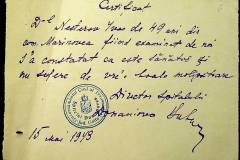 Certificat
Dl Nesterov Ivan de 49 ani din
com. Marinovca fiind examinat de noi
s'a constatat ca este sănătos și
nu sufere de vre'o boală molipsitoare
Directorul Spitalului
Domaniovca
15 Mai 1943